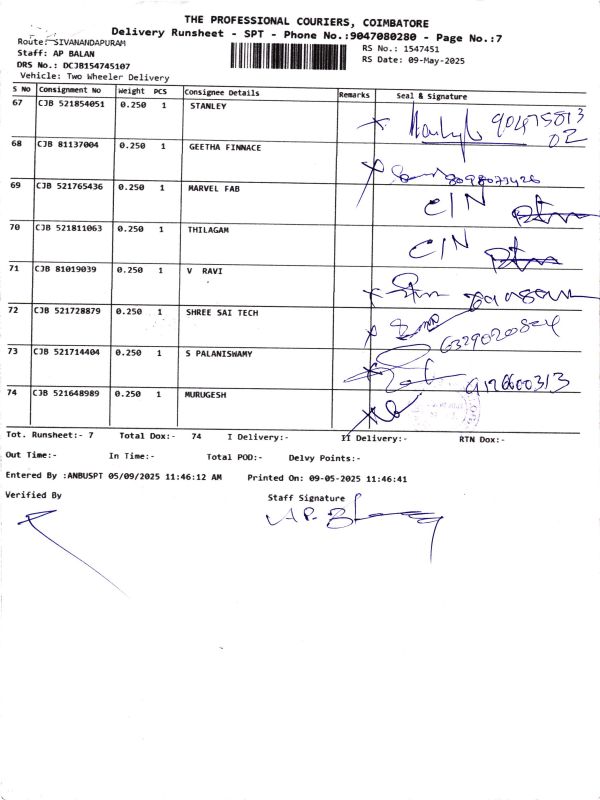 THE PROFESSIONAL COURIERS, COIMBATORE
Delivery Runsheet - SPT - Phone No.:9047080280 - Page No.:7
Route: SIVANANDAPURAM
Staff: AP BALAN
DRS No.: DCJB154745107
Vehicle: Two Wheeler Delivery
RS No.: 1547451
RS Date: 09-May-2025
S No Consignment No Weight PCS Consignee Details Remarks Seal & Signature
67 CJB 521854051 0.250 1 STANLEY
68 CJB 81137004 0.250 1 GEETHA FINNACE
69 CJB 521765436 0.250 1 MARVEL FAB C/N
70 CJB 521811063 0.250 1 THILAGAM C/N
71 CJB 81019039 0.250 1 V RAVI
72 CJB 521728879 0.250 1 SHREE SAI TECH
73 CJB 521714404 0.250 1 S PALANISWAMY
74 CJB 521648989 0.250 1 MURUGESH
Tot. Runsheet:- 7 Total Dox:- 74 I Delivery:- II Delivery:- RTN Dox:-
Out Time:- In Time:- Total POD:- Delvy Points:-
Entered By :ANBUSPT 05/09/2025 11:46:12 AM Printed On: 09-05-2025 11:46:41
Verified By
Staff Signature